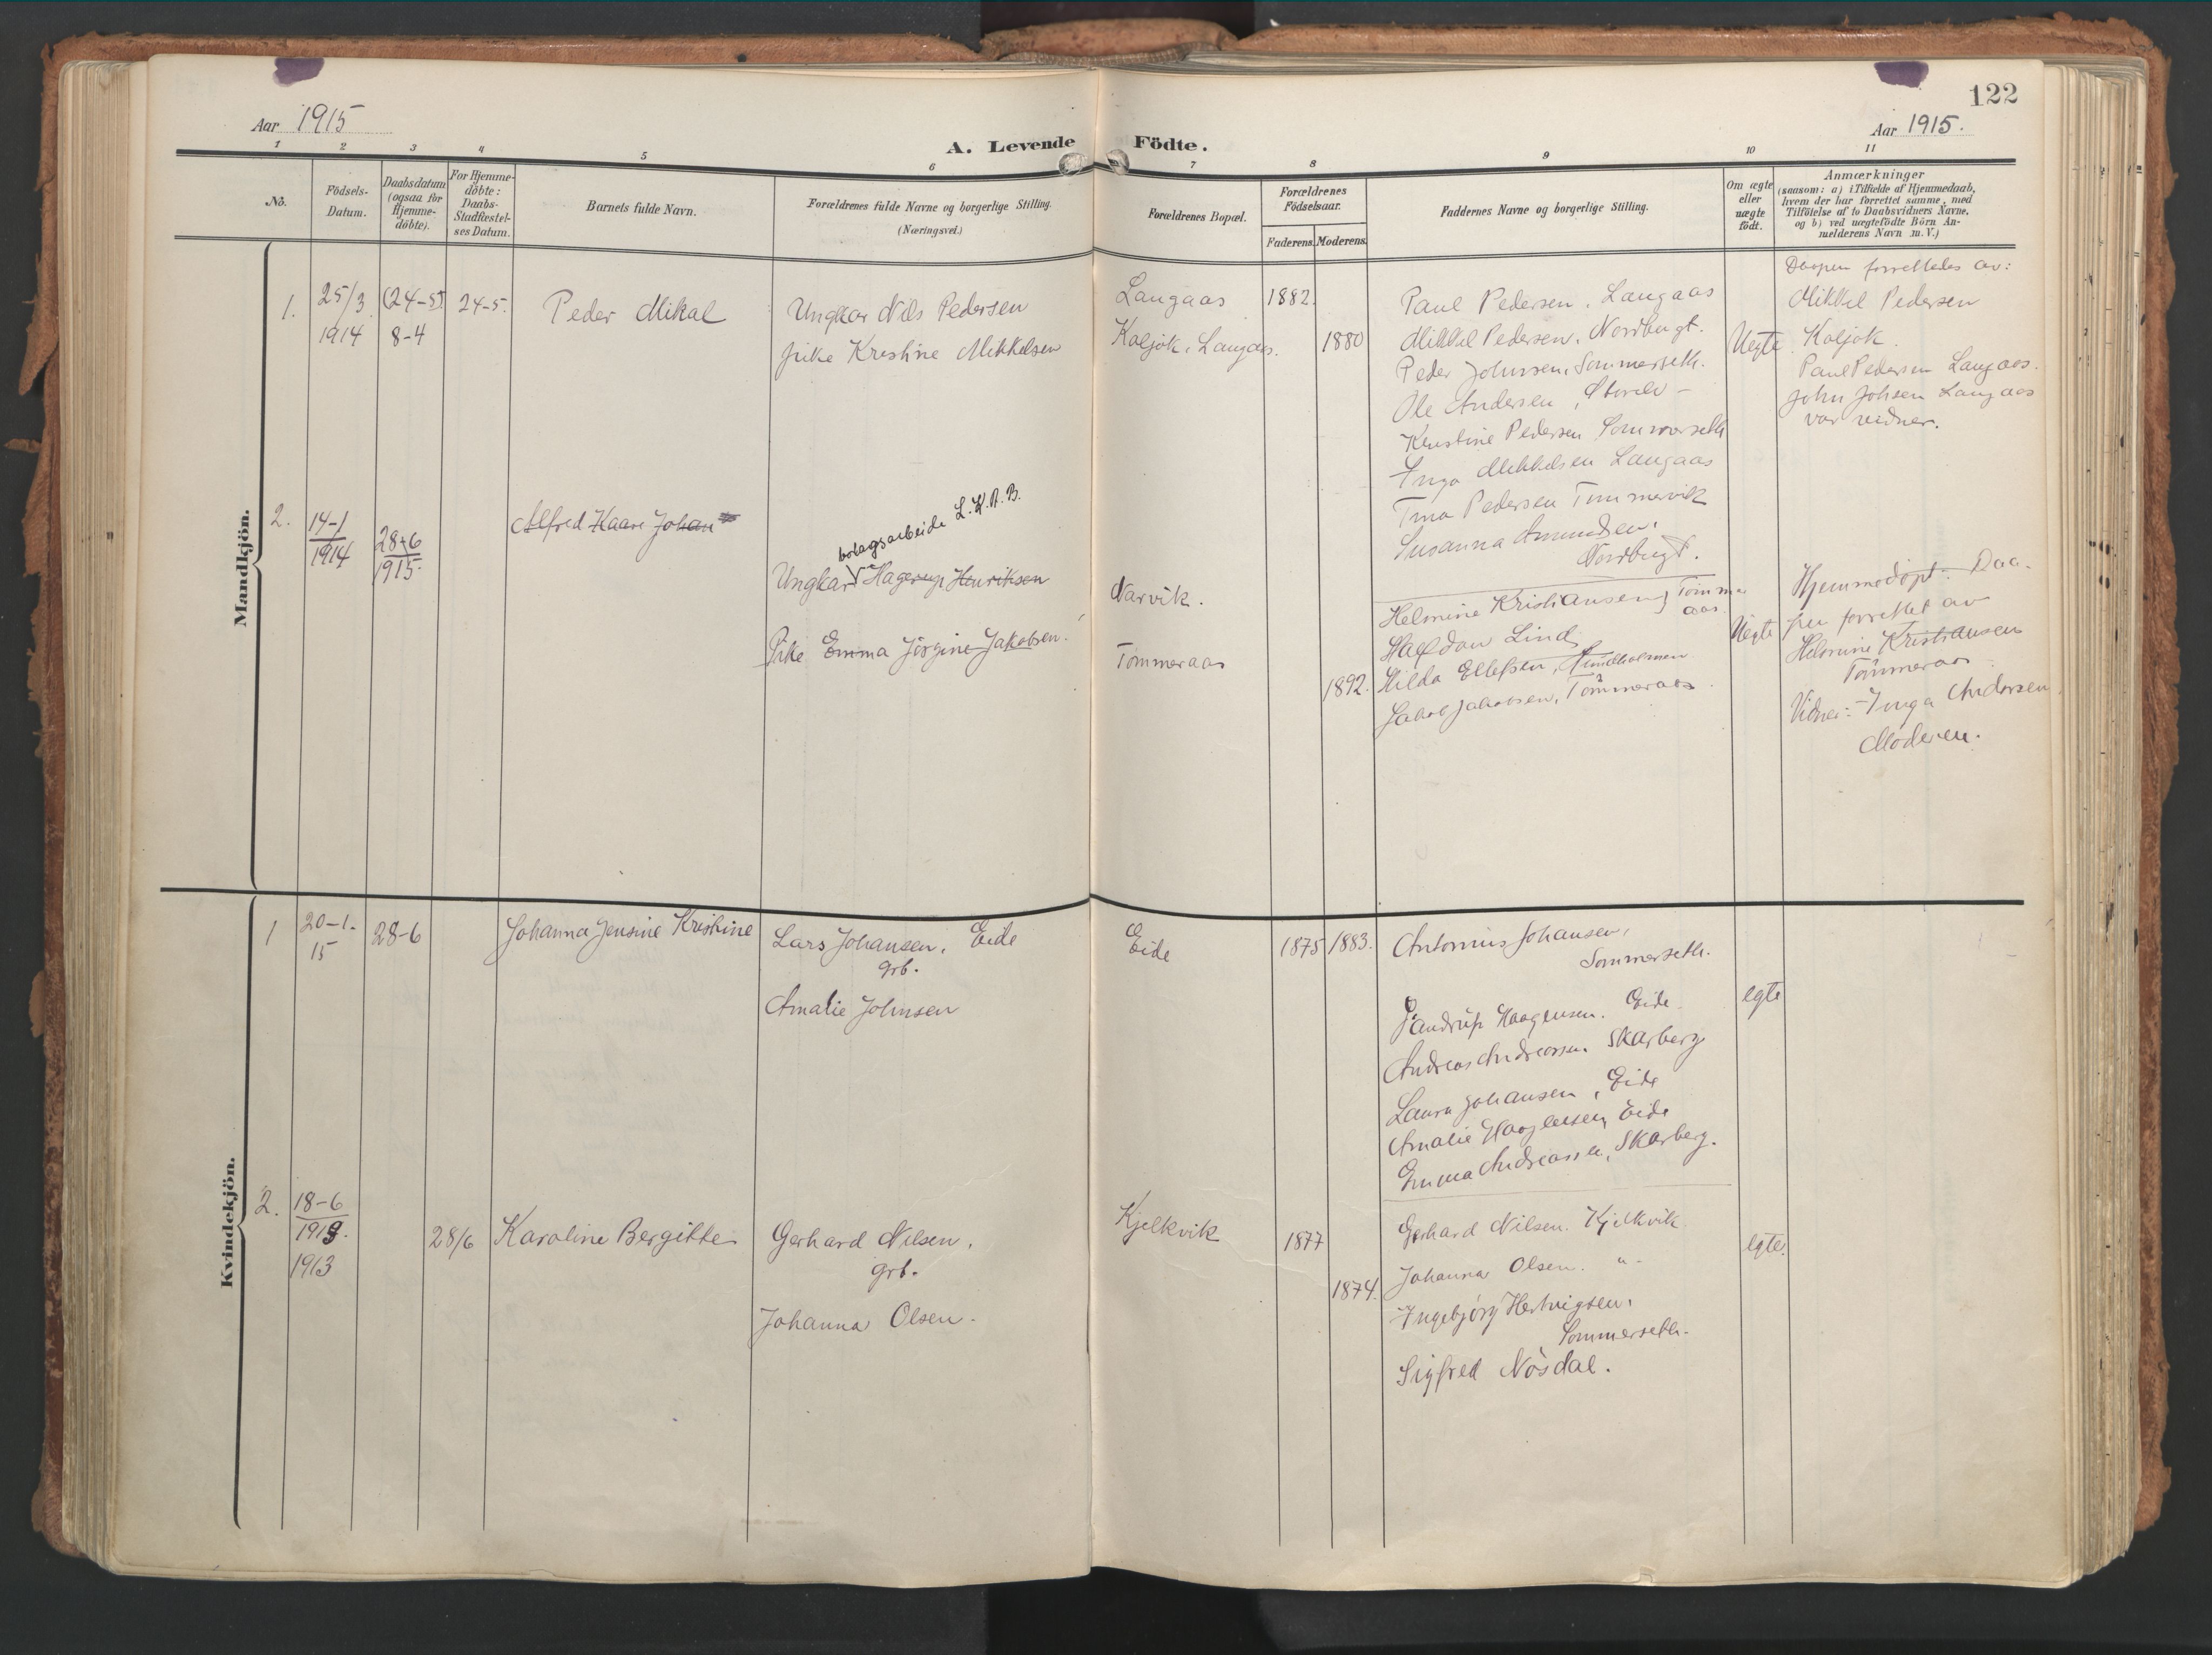 122
Aar 1915
Aar 1915.
A. Levende Födte.
1 2 3 4 5 6 7 8 9 10 11
No.
Födsels-
Datum.
Daabsdatum
(ogsaa for
Hjemme-
döbte).
For Hjemme-
döbte:
Daabs-
Stadfæstel-
ses Datum.
Barnets fulde Navn.
Forældrenes fulde Navne og borgerlige Stilling.
(Næringsvei.)
Forældrenes Bopæl.
Forældrenes
Födselsaar.
Faderens. Moderens.
Faddernes Navne og borgerlige Stilling.
Om ægte
eller
uægte
födt.
Anmærkninger
(saasom: a) i Tilfælde af Hjemmedaab,
hvem der har forrettet samme, med
Tilföielse af to Daabsvidners Navne,
og b) ved uægtefödte Börn An-
melderens Navn m.V.)
Mandkjön.
1.
25/3
1914
(24-5)
8-4
24-5.
Peder Mikal
Ungkar Nils Pedersen
Pike Kristine Mikkelsen
Langaas
Kaljok, Langaas.
1882.
1880
Paul Pedersen, Langaas
Mikkel Pedersen, Nordbugt.
Peder Johnsen, Sommerseth.
Ole Andersen, Storelv -
Kristine Pedersen Sommerseth
Inga Mikkelsen Langaas
Tina Pedersen Tømmervik
Susanna Amundsen,
Nordbugt.
Uegte
Daapen forrettedes av:
Mikkel Pedersen
Kaljok.
Paul Pedersen Langaas.
John Johsen Langaas
var vidner.
2.
14-1
1914
28-6
1915-
Alfred Kaare Johan
bolagsarbeide L.K.A.B.
Ungkar Hagerup Henriksen
Pike Emma Jörgine Jakobsen.
Narvik.
Tömmeraas
1892.
Helmine Kristiansen, Tömmer
aas.
Halfdan Lind
Hilda Ellefsen,
Jakob Jakobsen, Tömmeraas.
Uegte
Hjemmedöpt. Daa-
pen forrettet av
Helmine Kristiansen
Tömmeraas
Vidner: Inga Andersen
Moderen.
Kvindekjön.
1
20-1.
15
28-6
Johanna Jensine Kristine
Lars Johansen, Eide
grb.
Amalie Johnsen
Eide
1875 1883.
Antonius Johansen,
Sommerseth.
Jandrup Haagensen. Eide
Andreas Andreassen Skarberg
Laura Johansen, Eide
Amalie Haagensen, Eide
Emma Andreassen, Skarberg.
egte
2.
18-6
1913.
1913
28/6
Karoline Bergitte
Gerhard Nilsen,
grb.
Johanna Olsen.
Kjelkvik
1877
1874.
Gerhard Nilsen. Kjelkvik
Johanna Olsen. " -
Ingebjörg Hertvigsen,
Sommerseth.
Sigfred Nösdal.
egte.